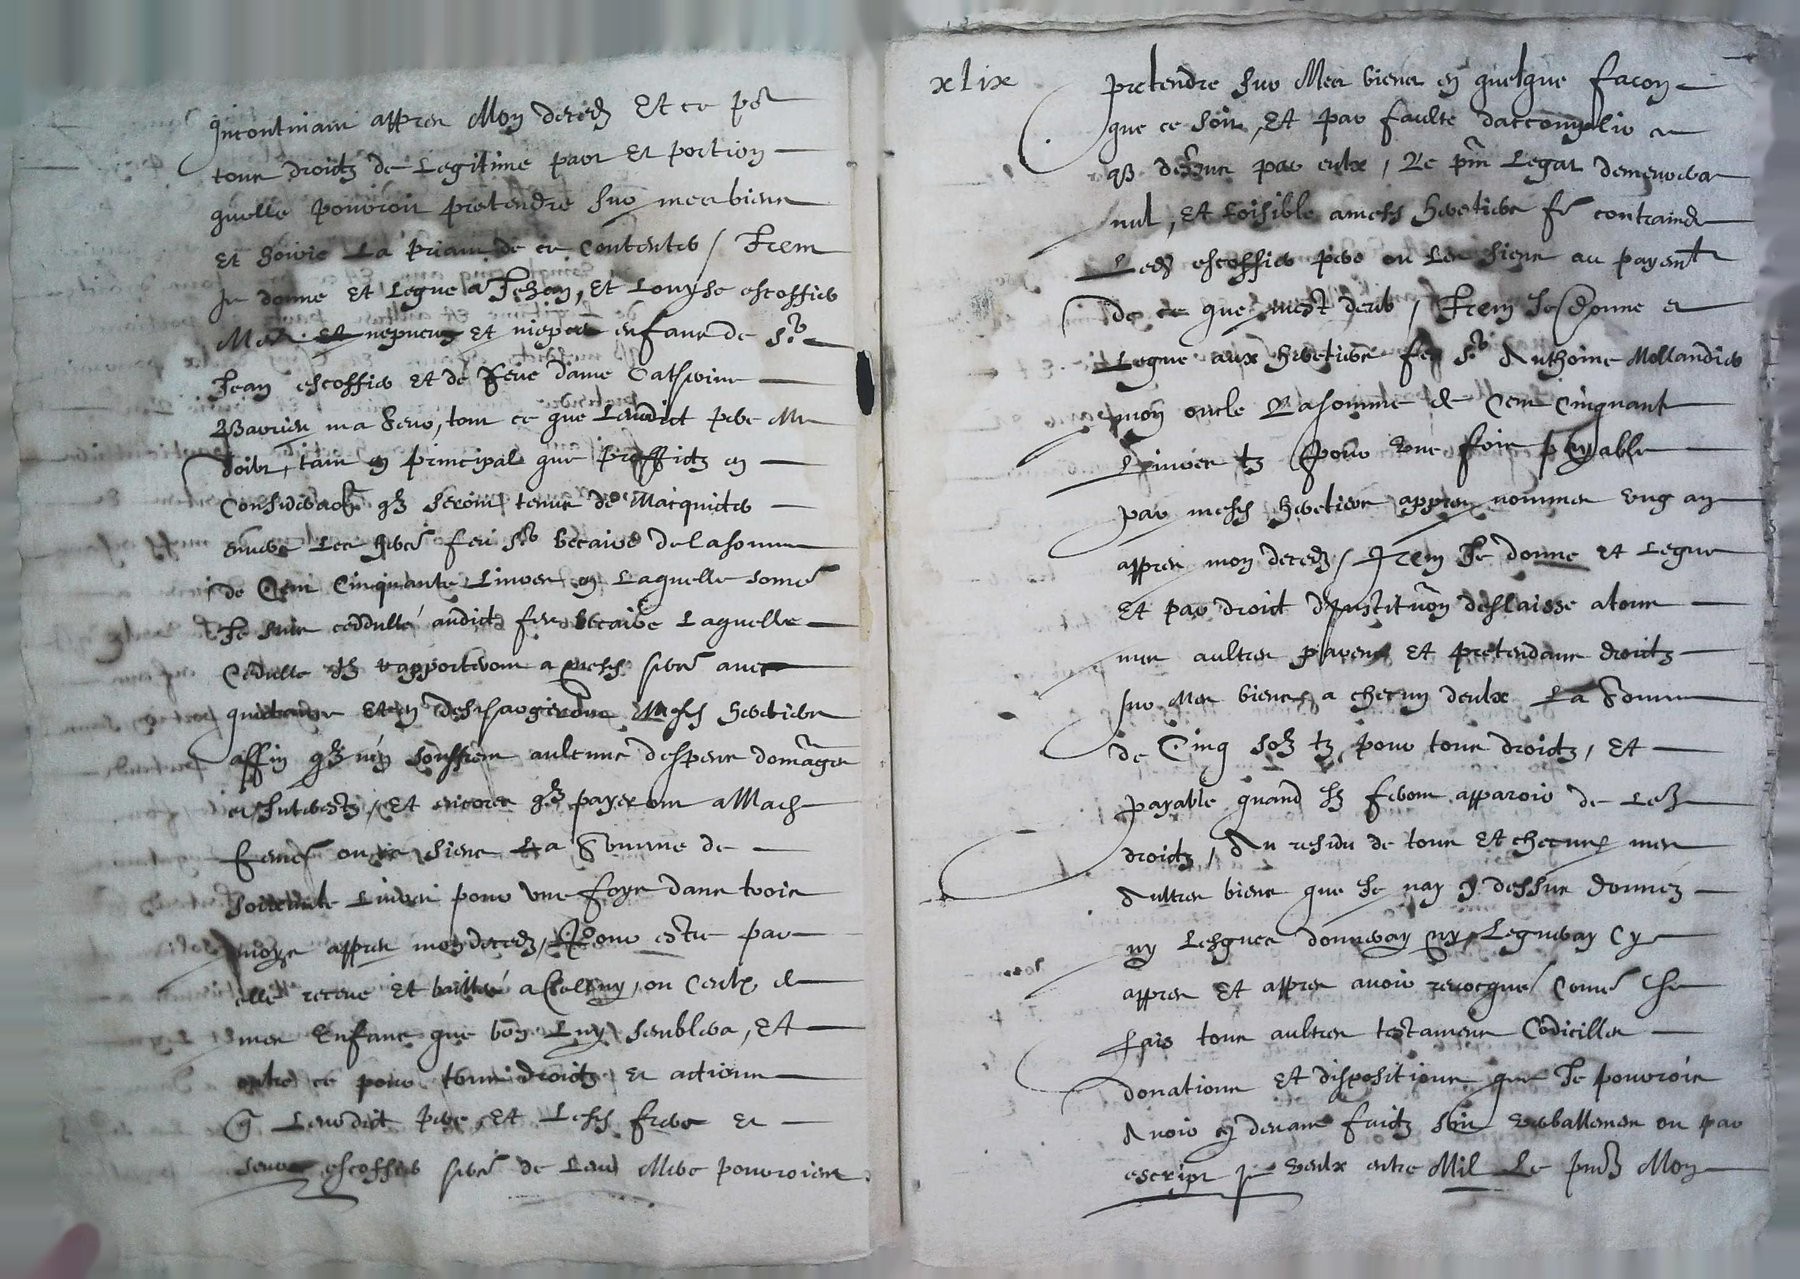 Incontinant appres Mon deces Et ce pour
tous droictz de Legitime part Et portion
quelle pouvroit pretendre sur mes biens
Et Items
Je donne Et Legue a Jehan, Et Louyse escoffier
nepveus et niepces enfans de Sr
Jean escoffier Et de feue dame Catherine
ma seur, tout ce que Leurdict pere me
doibt, tant en principal que proffictz en
Consideraon qlz seront tenus de Macquicter
envers Les feu Sr becaire de la somme
de Cent Cinquante Livres en Laquelle some
Je suis cedullé audict feu becaire Laquelle
Cedulle Ilz rapporteront a mesds avec
quictance Et en deschargeront Mesds heretiers
affin qlz nen souffrent aulcune despens domages
et Interestz, Et encores qlz payeront a Mad
femme ou es siens La Somme de
soixante Livres pour une foys dans trois
moys appres mon deces, pour estre par
elle receue Et baillee a ou Ceulx de
mes Enfans que bon Luy semblera, Et
oultre ce pour tous droictz et actions
q Leurdict pere, Et Lesds freres et
seurs escoffier de Leur Mere pouvroient
xlix
pretendre sur Mes biens en quelque facon
que ce soit, Et par faulte daccomplir ce
que dessus par eulx, Le pnt Legat demeurera
nul, Et Loisible a mesds heretiers contraindre
Led escoffier pere ou Les siens au payemt
de ce que mest deub, Item Je donne et
Legue aux heretiers feu Sr Anthoine Mollandier
mon oncle La somme de Cent Cinquante
Livres tz pour une fois payable
par mesds heretiers appres nommes ung an
appres mon deces, Item Je donne Et Legue
Et par droict dInstituon deslaisse a tous
mes aultres parens Et pretendans droictz
sur Mes biens a chacun deulx La Somme
de Cinq solz tz pour tous droictz, Et
payable quand Ilz feront apparoir de Lesd
droictz, Au residu de tous Et checuns mes
Aultres biens que Je nay cy dessus donnéz
ny Legues donneray ny Legueray Cy
appres Et appres avoir revocqué Come Je
fais tous aultres testamens Codicilles
donations Et dispositions que Je pouvrois
Avoir cy devant faictz soit verballement ou par
escript Je veulx estre Mil Le pnt Mon